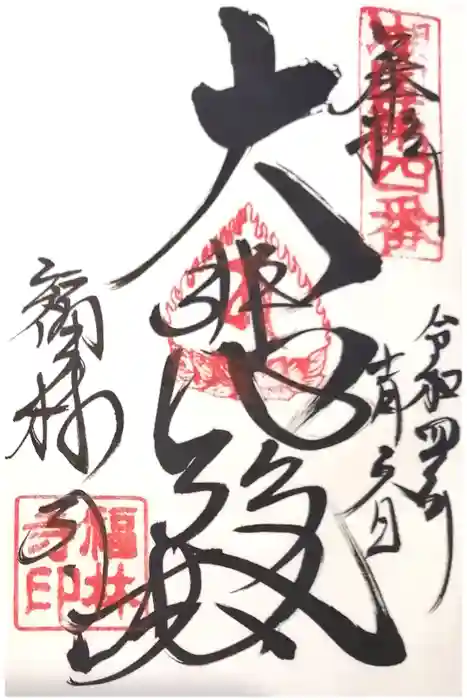 奉拝
四番
大悲殿
令和四年
十一月 日
福林寺
福林
寺印